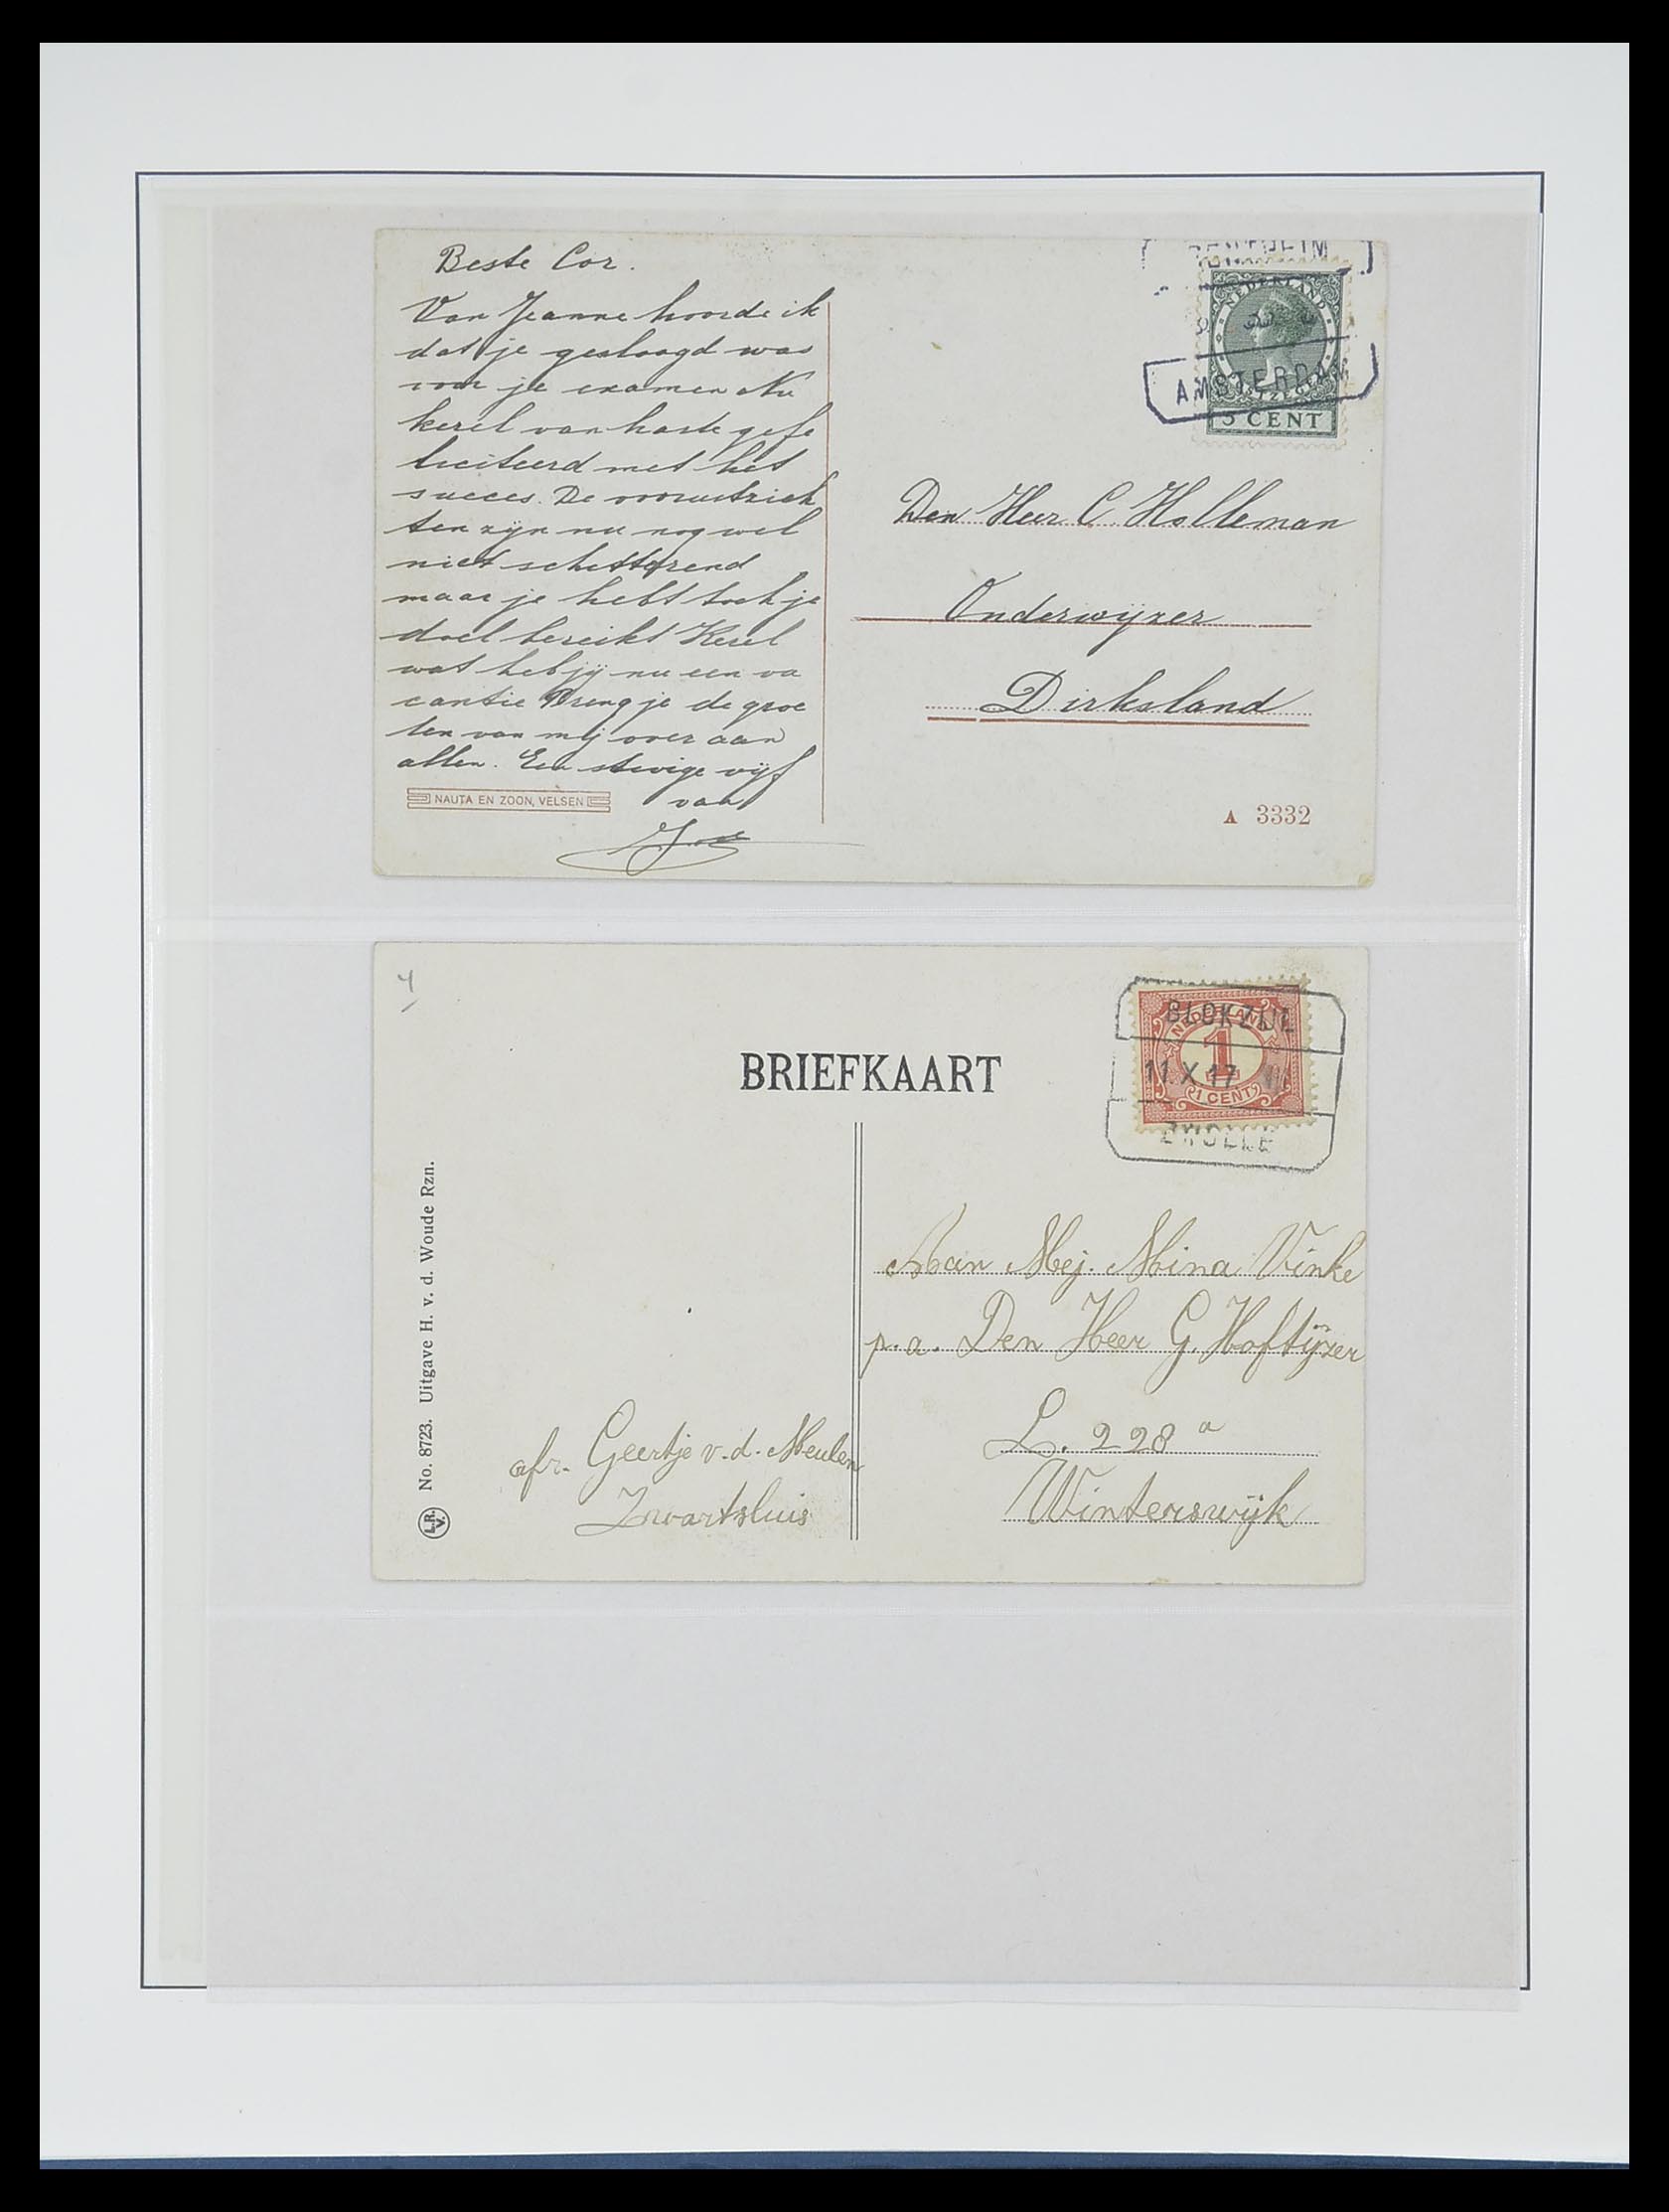 Beste Cor.
Van Jeanne hoorde ik
dat je geslaagd was
voor je examen Nu
kerel van harte gefe
liciteerd met het
succes. De vooruitzich
ten zijn nu nog wel
niet schitterend
maar je hebt toch je
doel bereikt Kerel
wat heb jij nu een va
cantie Breng je de groe
ten van mij over aan
allen. Een stevige vijf
van
NAUTA EN ZOON, VELSEN
AMSTERDAM
NEDERLAND
5 CENT
Den Heer C Holleman
Onderwijzer
Dirksland
A 3332
BRIEFKAART
BLOKZIJL
11.X.17
ZWOLLE
NEDERLAND
1
1 CENT
No. 8723. Uitgave H. v. d. Woude Rzn.
afz. Geertje v.d. Meulen
Zwartsluis
Aan Mej. Mina Vinke
p.a. Den Heer G. Hoftijzer
L. 228 a
Winterswijk